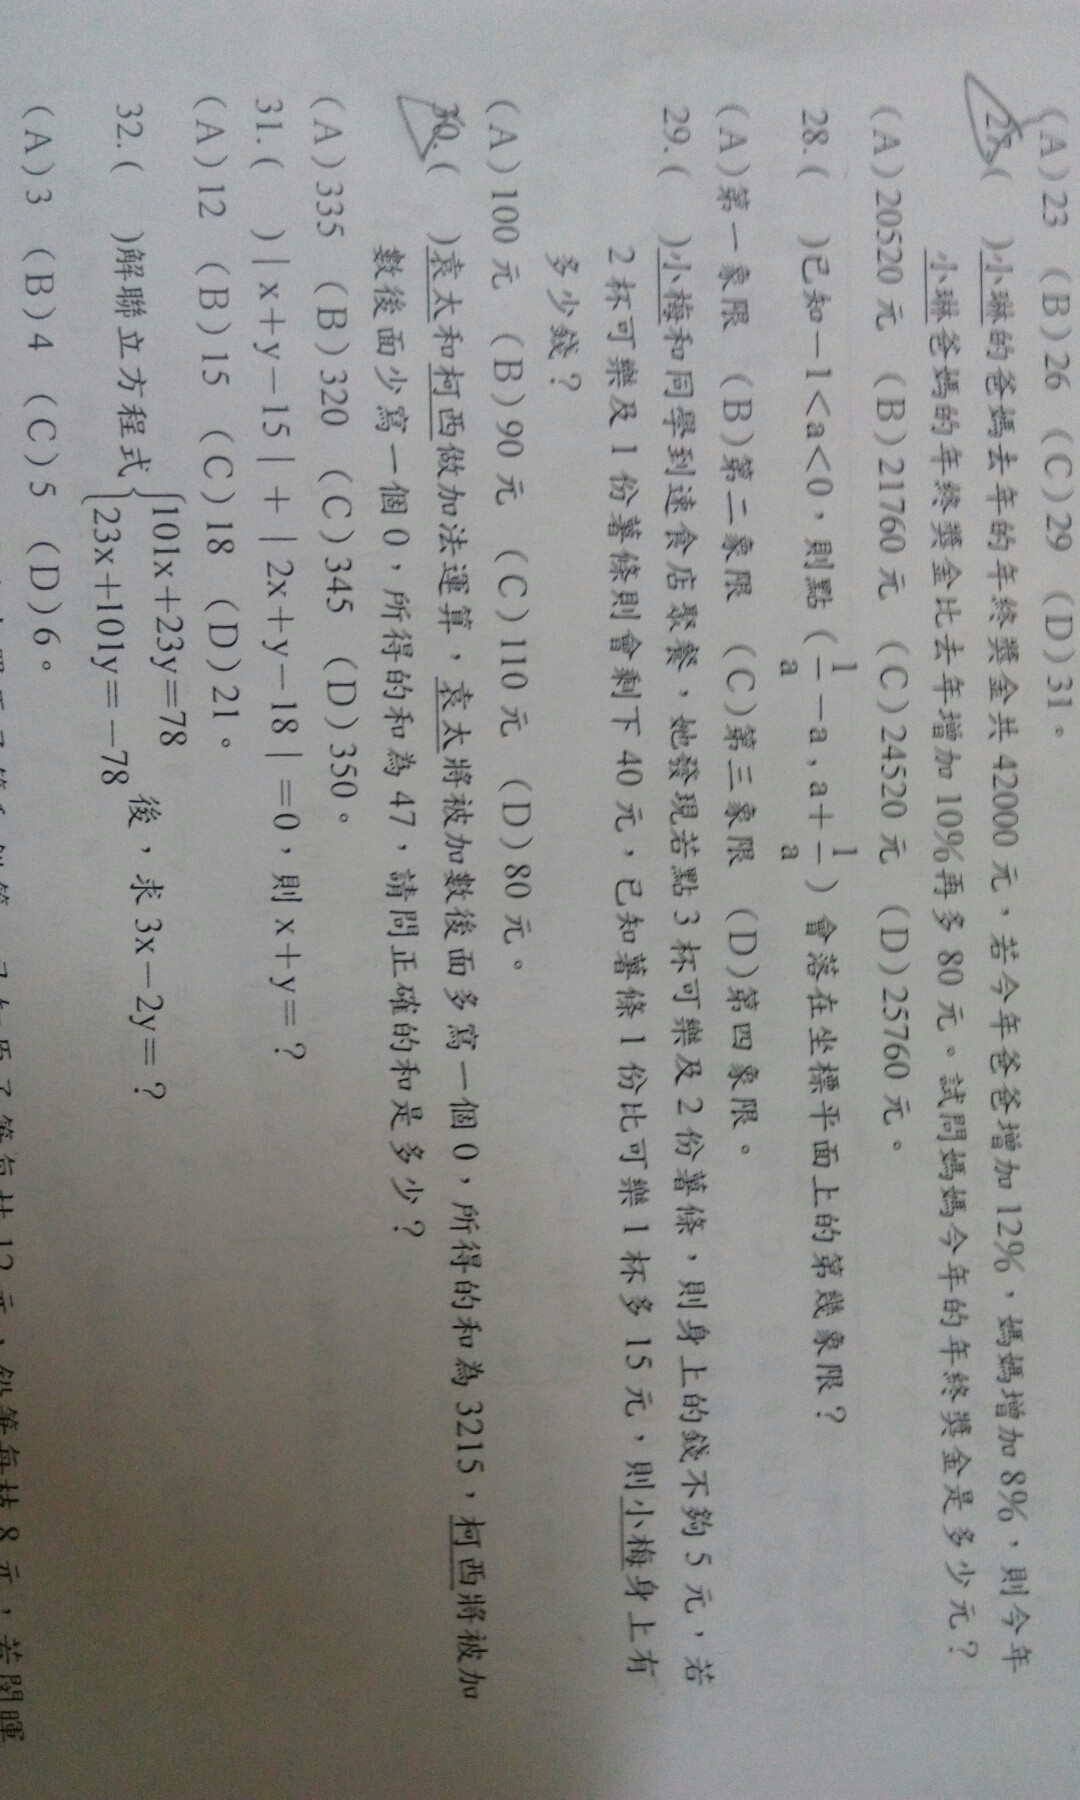 (A)23 (B)26 (C)29 (D)31。
27.( )小琳的爸媽去年的年終獎金共 42000 元，若今年爸爸增加 12%，媽媽增加 8%，則今年
小琳爸媽的年終獎金比去年增加 10%再多 80 元。試問媽媽今年的年終獎金是多少元？
(A)20520 元 (B)21760 元 (C)24520 元 (D)25760 元。
28.( )已知－1＜a＜0，則點（1/a－a , a＋1/a）會落在坐標平面上的第幾象限？
(A)第一象限 (B)第二象限 (C)第三象限 (D)第四象限。
29.( )小梅和同學到速食店聚餐，她發現若點 3 杯可樂及 2 份薯條，則身上的錢不夠 5 元，若
2 杯可樂及 1 份薯條則會剩下 40 元，已知薯條 1 份比可樂 1 杯多 15 元，則小梅身上有
多少錢？
(A)100 元 (B)90 元 (C)110 元 (D)80 元。
30.( )袁太和柯西做加法運算，袁太將被加數後面多寫一個 0，所得的和為 3215，柯西將被加
數後面少寫一個 0，所得的和為 47，請問正確的和是多少？
(A)335 (B)320 (C)345 (D)350。
31.( )｜x＋y－15｜＋｜2x＋y－18｜＝0，則 x＋y＝？
(A)12 (B)15 (C)18 (D)21。
32.( )解聯立方程式{101x＋23y＝78
23x＋101y＝－78 後，求 3x－2y＝？
(A)3 (B)4 (C)5 (D)6。